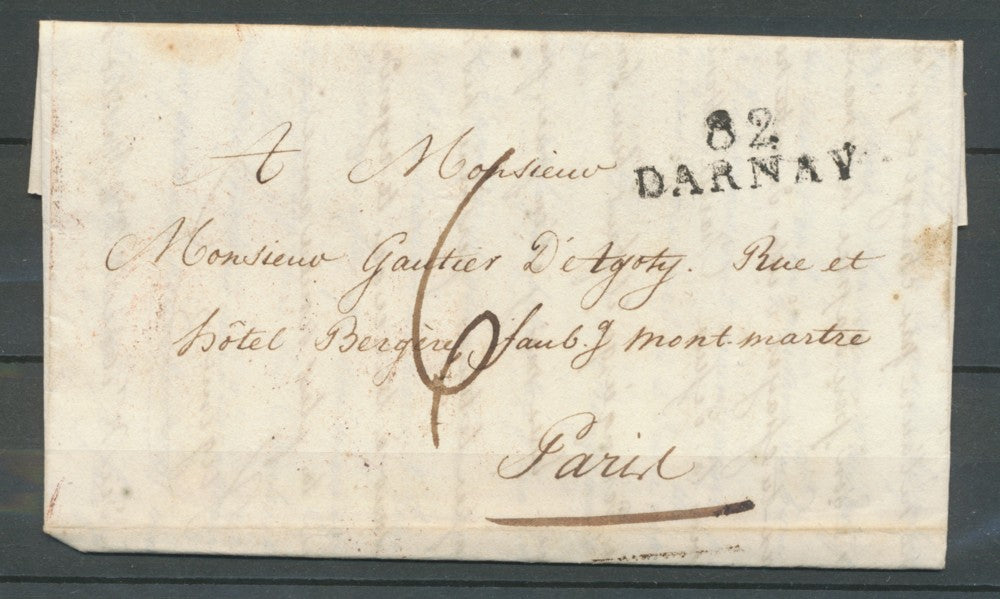 82
DARNAY
A Monsieur
Monsieur Gautier D'Agoty. Rue et
hôtel Bergère, faub. g mont. martre
6
Paris